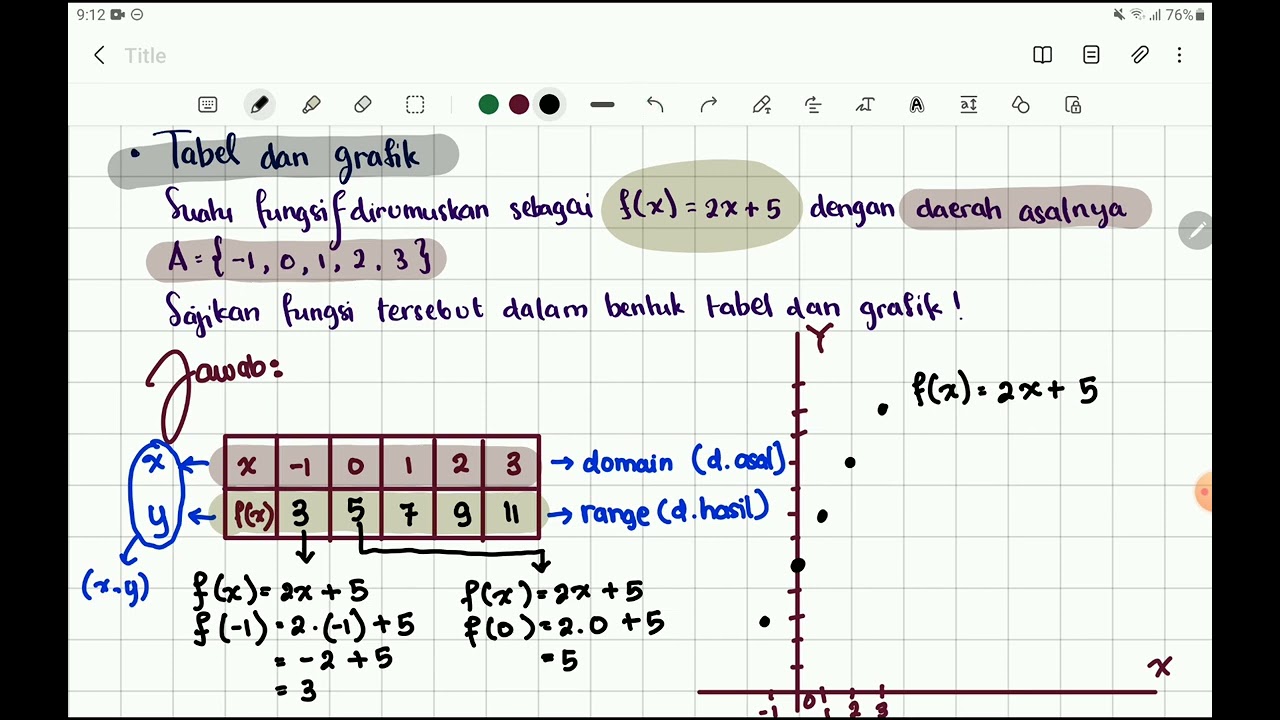 9:12 76%
Title
• Tabel dan grafik
Suatu fungsi f dirumuskan sebagai f(x) = 2x + 5 dengan daerah asalnya
A = {-1, 0, 1, 2, 3}
Sajikan fungsi tersebut dalam bentuk tabel dan grafik!
Jawab:
x x -1 0 1 2 3 → domain (d.asal)
y f(x) 3 5 7 9 11 → range (d.hasil)
(x.y)
f(x) = 2x + 5
f(-1) = 2.(-1) + 5
= -2 + 5
= 3
f(x) = 2x + 5
f(0) = 2.0 + 5
= 5
Y
f(x) = 2x + 5
X
-1 0 1 2 3